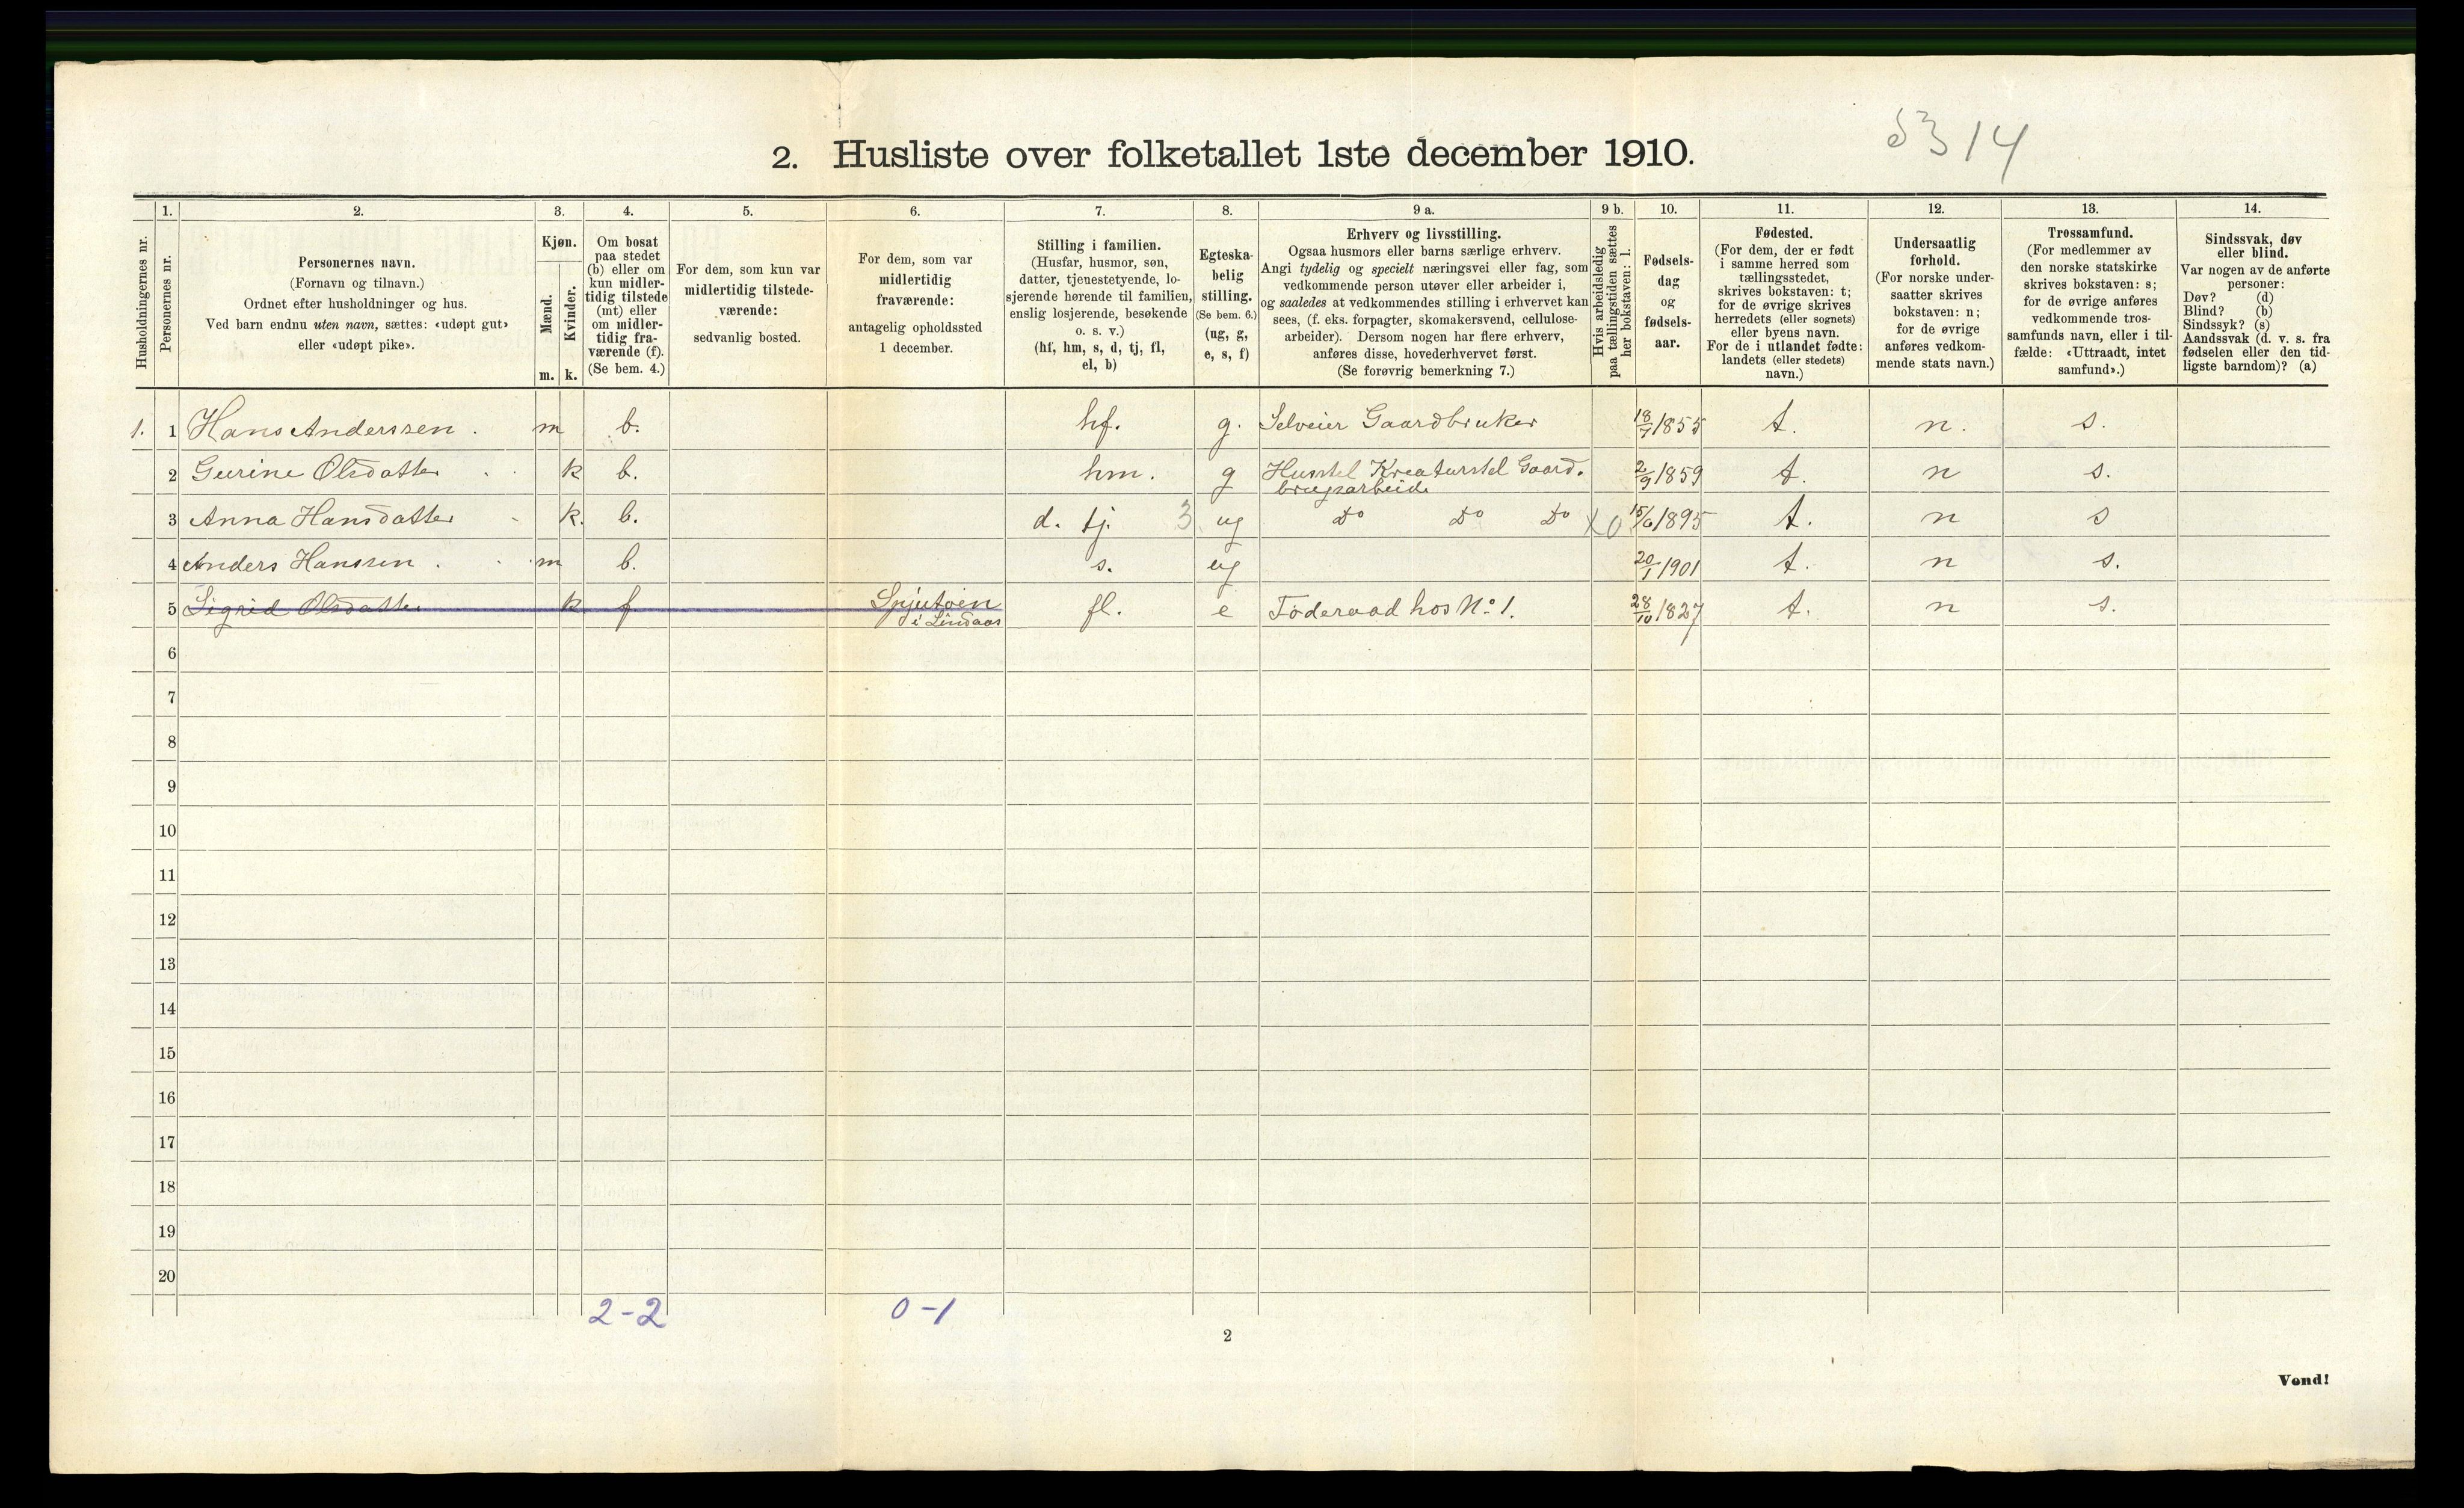 2. Husliste over folketallet 1ste december 1910.
5314
Husholdningernes nr.
1.
Personernes nr.
2.
Personernes navn.
(Fornavn og tilnavn.)
Ordnet efter husholdninger og hus.
Ved barn endnu uten navn, sættes: «udøpt gut»
eller «udøpt pike».
3.
Kjøn.
Mænd.
Kvinder.
m. k.
4.
Om bosat
paa stedet
(b) eller om
kun midler-
tidig tilstede
(mt) eller
om midler-
tidig fra-
værende (f).
(Se bem. 4.)
5.
For dem, som kun var
midlertidig tilstede-
værende:
sedvanlig bosted.
6.
For dem, som var
midlertidig
fraværende:
antagelig opholdssted
1 december.
7.
Stilling i familien.
(Husfar, husmor, søn,
datter, tjenestetyende, lo-
sjerende hørende til familien,
enslig losjerende, besøkende
o. s. v.)
(hf, hm, s, d, tj, fl,
el, b)
8.
Egteska-
belig
stilling.
(Se bem. 6.)
(ug, g,
e, s, f)
9 a.
Erhverv og livsstilling.
Ogsaa husmors eller barns særlige erhverv.
Angi tydelig og specielt næringsvei eller fag, som
vedkommende person utøver eller arbeider i,
og saaledes at vedkommendes stilling i erhvervet kan
sees, (f. eks. forpagter, skomakersvend, cellulose-
arbeider). Dersom nogen har flere erhverv,
anføres disse, hovederhvervet først.
(Se forøvrig bemerkning 7.)
9 b.
Hvis arbeidsledig
paa tællingstiden sættes
her bokstaven: l.
10.
Fødsels-
dag
og
fødsels-
aar.
11.
Fødested.
(For dem, der er født
i samme herred som
tællingsstedet,
skrives bokstaven: t;
for de øvrige skrives
herredets (eller sognets)
eller byens navn.
For de i utlandet fødte:
landets (eller stedets)
navn.)
12.
Undersaatlig
forhold.
(For norske under-
saatter skrives
bokstaven: n;
for de øvrige
anføres vedkom-
mende stats navn.)
13.
Trossamfund.
(For medlemmer av
den norske statskirke
skrives bokstaven: s;
for de øvrige anføres
vedkommende tros-
samfunds navn, eller i til-
fælde: «Uttraadt, intet
samfund».)
14.
Sindssvak, døv
eller blind.
Var nogen av de anførte
personer:
Døv? (d)
Blind? (b)
Sindssyk? (s)
Aandssvak (d. v. s. fra
fødselen eller den tid-
ligste barndom)? (a)
1. 1 Hans Anderssen. m b. hf. g. Selveier Gaardbruker 18/7 1855 t. n. s.
2 Gurine Olsdatter k b. hm. g Husstel Kreaturstel Gaard. 2/9 1859 t. n s.
brugsarbeide
3 Anna Hansdatter k. b. d. tj. 3 ug Do Do Do X0 15/6 1895 t. n s
4 Anders Hanssen. m b. s. ug 20/1 1901 t. n s.
5 Sigrid Olsdatter k f fl. e Føderaad hos No 1. 28/10 1827 t. n s.
i Lindaas
6
7
8
9
10
11
12
13
14
15
16
17
18
19
20
2-2 0-1
2
Vend!